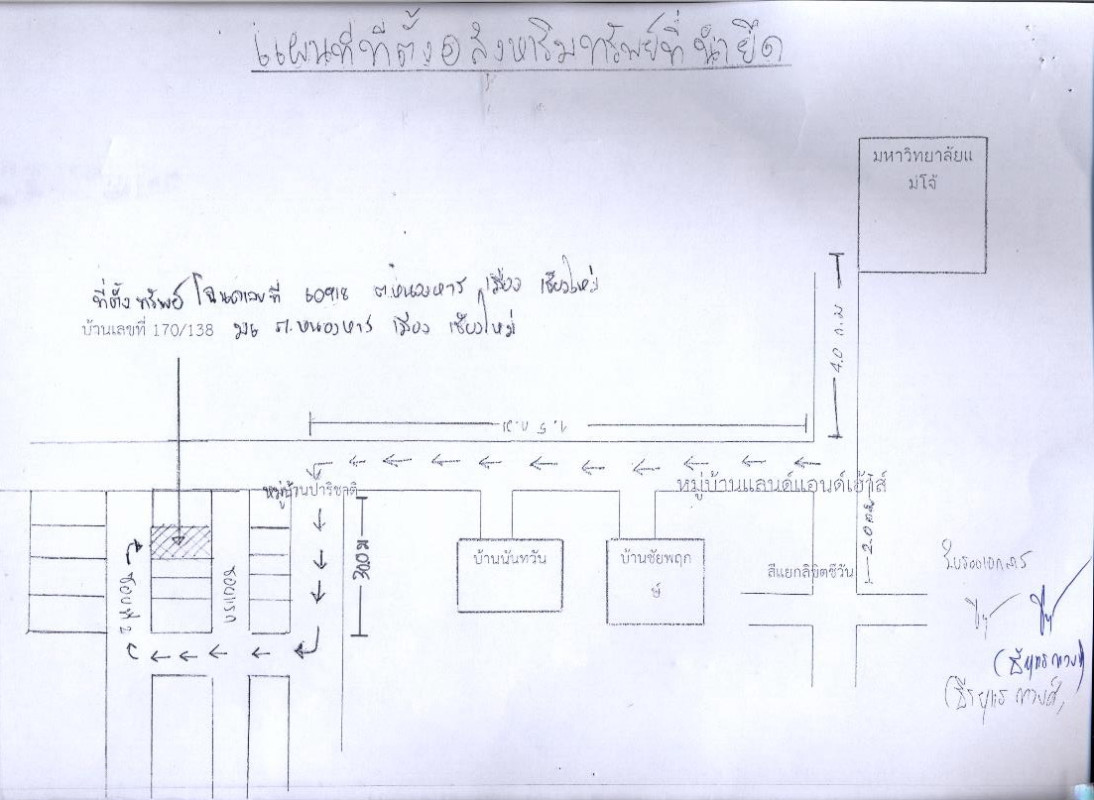 แผนที่ที่ตั้งอสังหาริมทรัพย์ที่นำยึด
มหาวิทยาลัยแ
ม่โจ้
ที่ตั้งทรัพย์ โฉนดเลขที่ 60918 ต.หนองหาร เมือง เชียงใหม่
บ้านเลขที่ 170/138 ม6 ต.หนองหาร เมือง เชียงใหม่
4.0 ก.ม
1.5 ก.ม
หมู่บ้านแลนด์แอนด์เฮ้าส์
หมู่บ้านปาริชาติ
300 ม
บ้านนันทวัน
บ้านชัยพฤก
ษ์
สี่แยกลิขิตชีวัน
ซอยแรก
ซอยที่ 2
รับรองเอกสาร